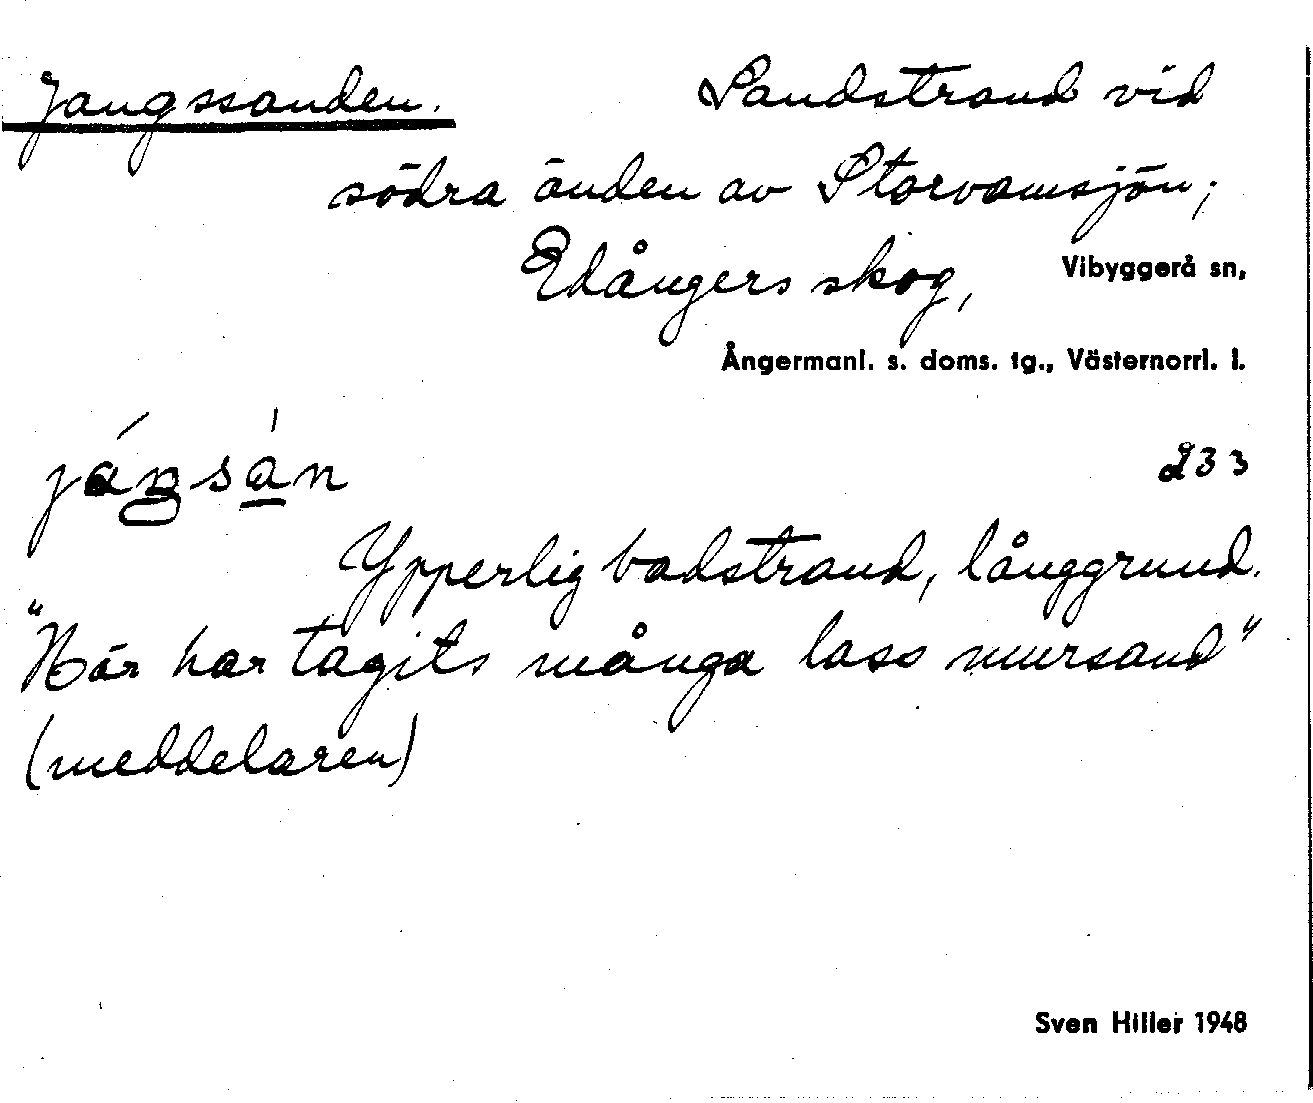 Jangssanden. Sandstrand vid
södra änden av Storvamsjön;
Edångers skog, Vibyggerå sn,
Ångermanl. s. doms. tg., Västernorrl. l.
233
Ypperlig badstrand, långgrund.
"Här har tagits många lass mursand"
(meddelaren)
Sven Hiller 1948